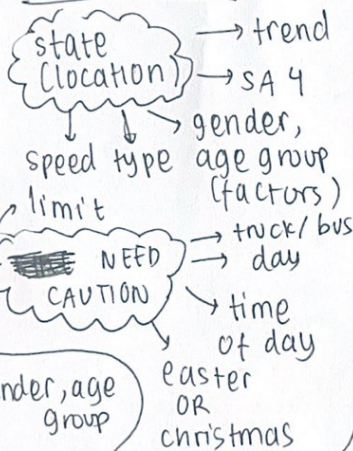 state
(location)
→ trend
→ SA 4
gender,
age group
(factors)
speed
limit
type
NEED
CAUTION
→ truck/bus
→ day
time
of day
easter
OR
christmas
nder, age
group